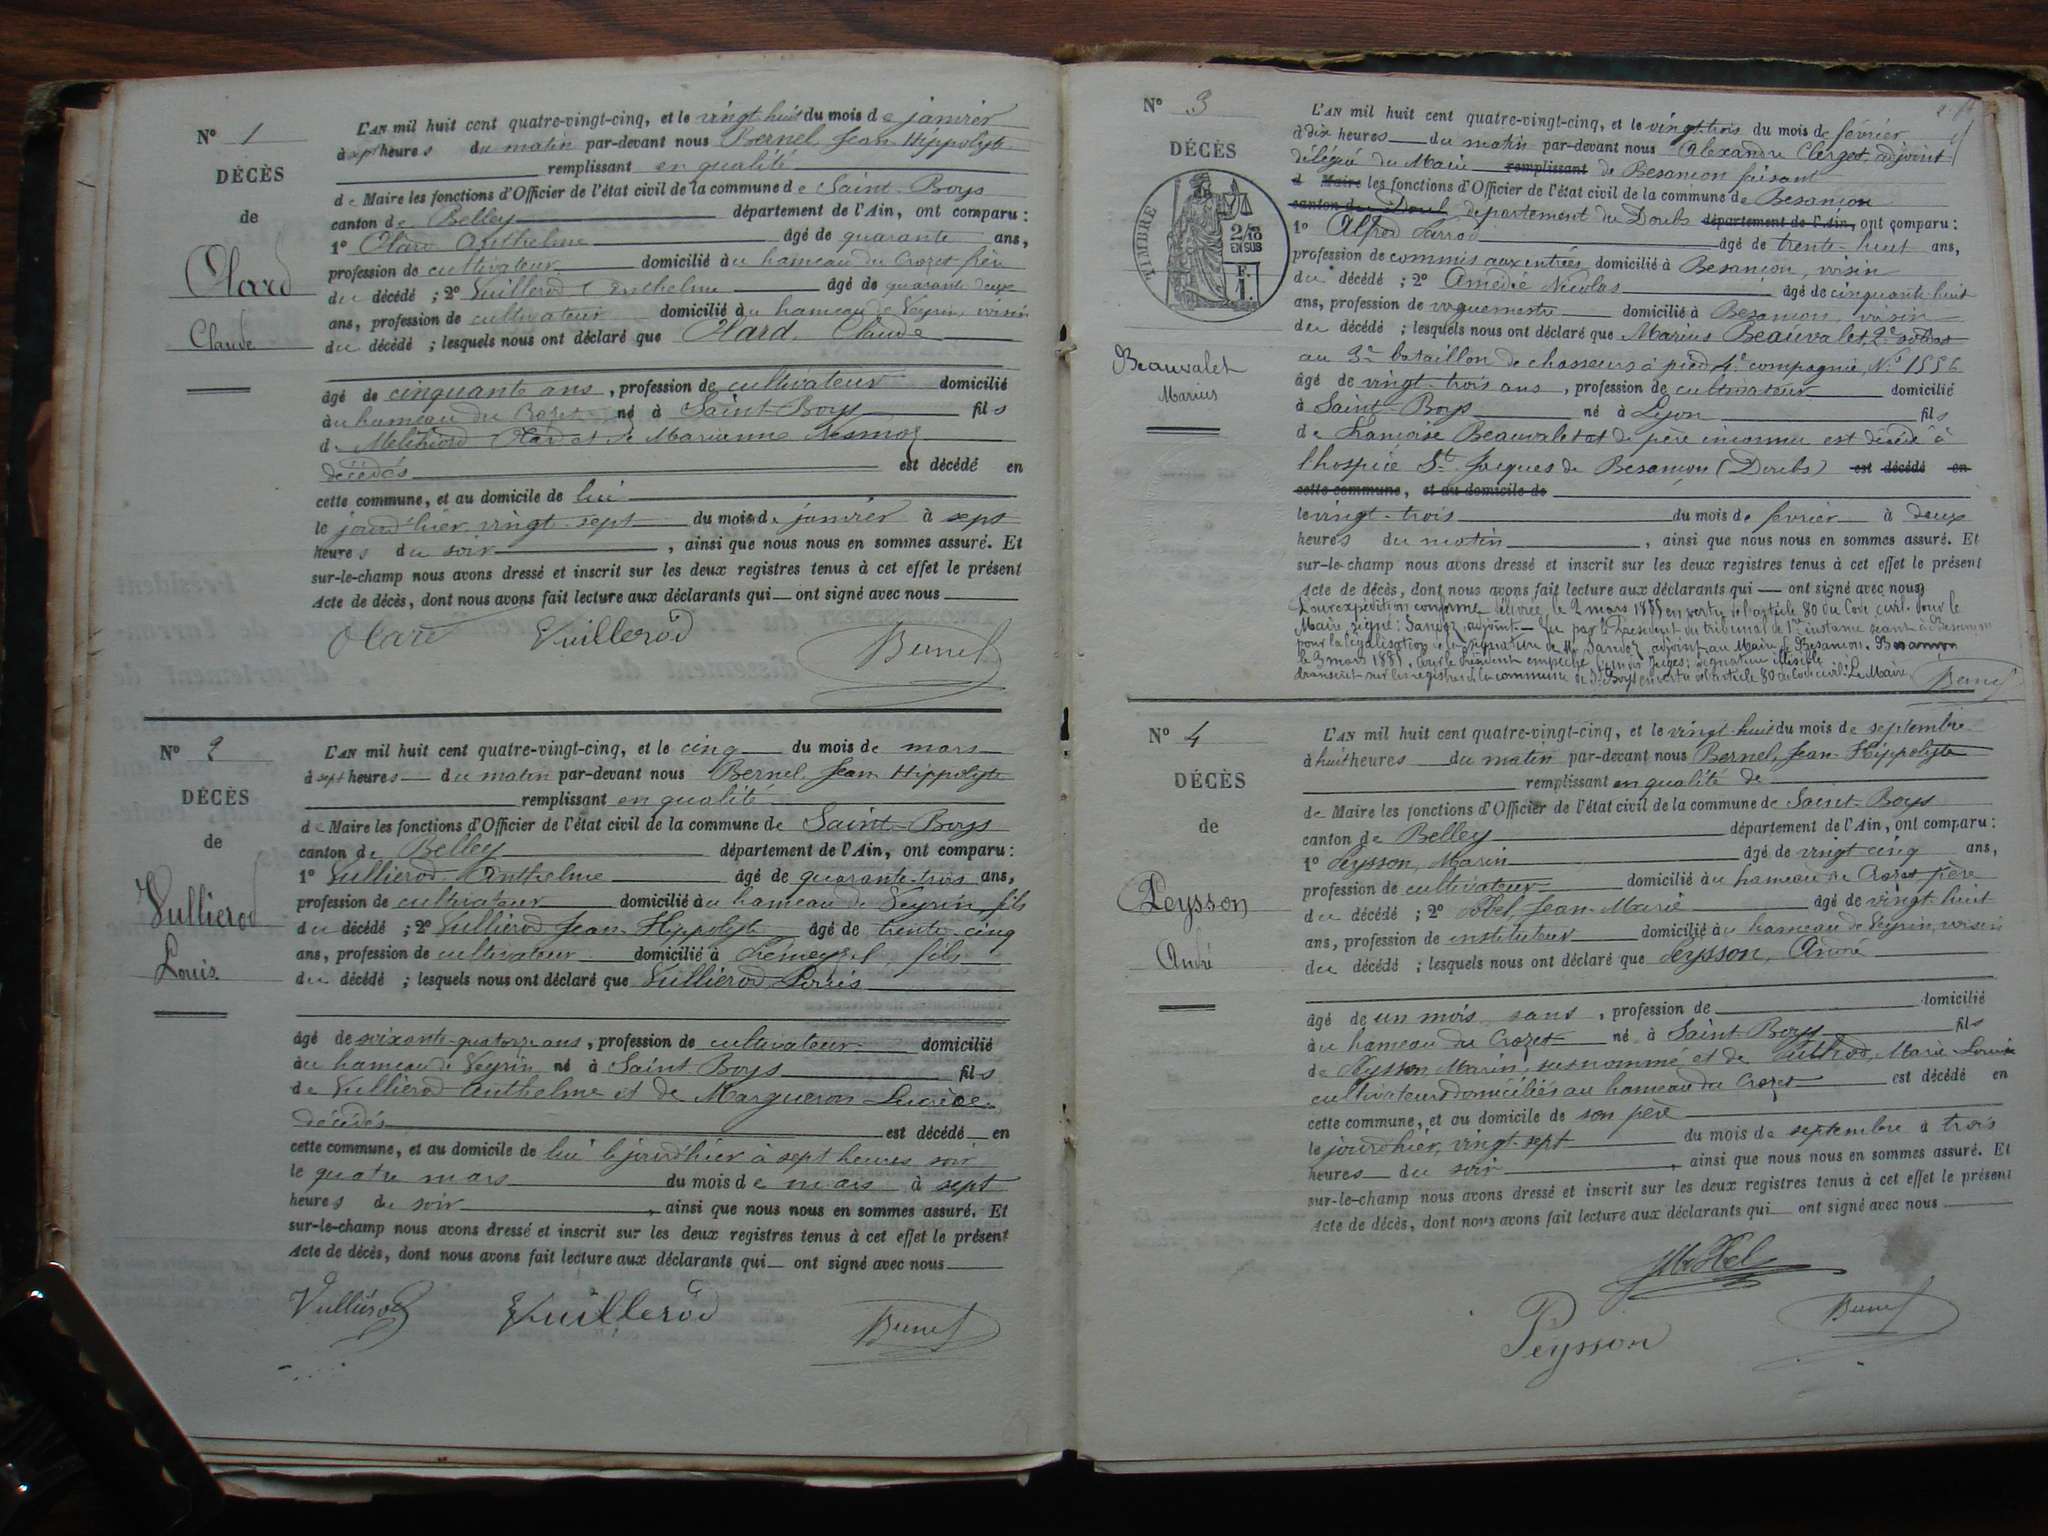 N° 1
DÉCÈS
de
Clard
Claude
L'AN mil huit cent quatre-vingt-cinq, et le vingt huit du mois de janvier
à sept heures du matin par-devant nous Bernel, Jean Hippolyte
remplissant en qualité
de Maire les fonctions d'Officier de l'état civil de la commune de Saint-Boys
canton de Belley département de l'Ain, ont comparu :
1° Clard Anthelme âgé de quarante ans,
profession de cultivateur domicilié au hameau du Crozet frère
du décédé ; 2° Vuillerod Anthelme âgé de quarante deux
ans, profession de cultivateur domicilié au hameau de Veyrin, voisin
du décédé ; lesquels nous ont déclaré que Clard, Claude
âgé de cinquante ans, profession de cultivateur domicilié
au hameau du Crozet né à Saint-Boys fils
de Melchiord Clard et de Marianne
décédés est décédé en
cette commune, et au domicile de lui
le jourd'hier vingt-sept du mois de janvier à sept
heures du soir, ainsi que nous nous en sommes assuré. Et
sur-le-champ nous avons dressé et inscrit sur les deux registres tenus à cet effet le présent
Acte de décès, dont nous avons fait lecture aux déclarants qui ont signé avec nous
Clard Vuillerod Bernel
N° 2
DÉCÈS
de
Vullierod
Louis
L'AN mil huit cent quatre-vingt-cinq, et le cinq du mois de mars
à sept heures du matin par-devant nous Bernel, Jean Hippolyte
remplissant en qualité
de Maire les fonctions d'Officier de l'état civil de la commune de Saint-Boys
canton de Belley département de l'Ain, ont comparu :
1° Vullierod Anthelme âgé de quarante-trois ans,
profession de cultivateur domicilié au hameau de Veyrin, fils
du décédé ; 2° Vullierod Jean-Hippolyte âgé de trente-cinq
ans, profession de cultivateur domicilié à fils
du décédé ; lesquels nous ont déclaré que Vullierod Louis
âgé de soixante-quatorze ans, profession de cultivateur domicilié
au hameau de Veyrin né à Saint-Boys fils
de Vullierod Anthelme et de Margueron Lucrèce
décédés est décédé en
cette commune, et au domicile de lui le jourd'hier à sept heures soir
le quatre mars du mois de mars à sept
heures du soir, ainsi que nous nous en sommes assuré. Et
sur-le-champ nous avons dressé et inscrit sur les deux registres tenus à cet effet le présent
Acte de décès, dont nous avons fait lecture aux déclarants qui ont signé avec nous
Vulliérod Vuillerod Bernel
N° 3
DÉCÈS
TIMBRE
2/10
EN SUS
F.
1.
Beauvalet
Marius
L'AN mil huit cent quatre-vingt-cinq, et le vingt-trois du mois de février
à dix heures du matin par-devant nous Alexandre Clerget, adjoint
délégué du Maire remplissant de Besançon faisant
d Maire les fonctions d'Officier de l'état civil de la commune de Besançon
canton du Doub département du Doubs département de l'Ain, ont comparu :
1° Alfred âgé de trente-huit ans,
profession de commis aux entrées domicilié à Besançon, voisin
du décédé ; 2° Amédié Nicolas âgé de cinquante-huit
ans, profession de vaguemestre domicilié à Besançon, voisin
du décédé ; lesquels nous ont déclaré que Marius Beauvalet, 2e soldat
au 3e bataillon de chasseurs à pied 4e compagnie, N° 1556
âgé de vingt-trois ans, profession de cultivateur domicilié
à Saint-Boys né à Lyon fils
de Françoise Beauvalet et de père inconnu est décédé à
l'hospice St Jacques de Besançon (Doubs) est décédé en
cette commune, et au domicile de
le vingt-trois du mois de février à deux
heures du matin, ainsi que nous nous en sommes assuré. Et
sur-le-champ nous avons dressé et inscrit sur les deux registres tenus à cet effet le présent
Acte de décès, dont nous avons fait lecture aux déclarants qui ont signé avec nous
Pour expédition conforme délivrée le 2 mars 1885 en vertu de l'article 80 du Code civil. Pour le
Maire, signé : Sandoz, adjoint. Vu par le Président du tribunal de 1re instance séant à Besançon
pour la légalisation de la signature de Mr Sandoz adjoint au Maire de Besançon. Besançon
le 3 mars 1885. Pour le Président empêché l'un des Juges : signature illisible
transcrit sur les registres de la commune de St Boys en vertu de l'article 80 du Code civil. Le Maire, Bernel
N° 4
DÉCÈS
de
Peysson
André
L'AN mil huit cent quatre-vingt-cinq, et le vingt-huit du mois de septembre
à huit heures du matin par-devant nous Bernel, Jean-Hippolyte
remplissant en qualité de
de Maire les fonctions d'Officier de l'état civil de la commune de Saint-Boys
canton de Belley département de l'Ain, ont comparu :
1° Peysson, Marin âgé de vingt cinq ans,
profession de cultivateur domicilié au hameau du Crozet, père
du décédé ; 2° Jean-Marie âgé de vingt-huit
ans, profession de instituteur domicilié au hameau de Veyrin, voisin
du décédé ; lesquels nous ont déclaré que Peysson, André
âgé de un mois, sans, profession de domicilié
au hameau du Crozet né à Saint-Boys fils
de Peysson Marin, susnommé et de Marie Louise
cultivateurs domiciliés au hameau du Crozet est décédé en
cette commune, et au domicile de son père
le jourd'hier, vingt-sept du mois de septembre à trois
heures du soir, ainsi que nous nous en sommes assuré. Et
sur-le-champ nous avons dressé et inscrit sur les deux registres tenus à cet effet le présent
Acte de décès, dont nous avons fait lecture aux déclarants qui ont signé avec nous
Peysson Bernel